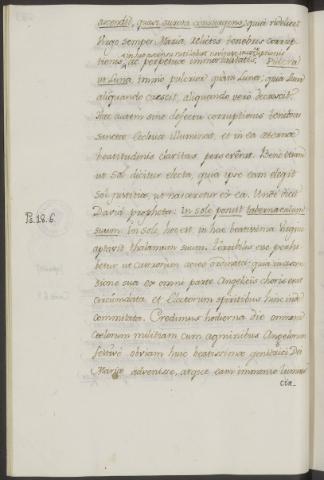 ascendit, quasi aurora consurgens, quia videlicet
Virgo semper Maria, relictis tenebris corrup-
tionis ac perpetuae immortalitatis. Pulcra
ut Luna, immo pulcrior quam Luna; quia Luna
aliquando crescit, aliquando vero decrescit.
Haec autem sine defectu corruptionis tenebras
sanctae Ecclesiae illuminat, et in ea aeternae
beatitudinis claritas perseverat. Bene etiam
ut sol dicitur electa, quia ipse eam elegit
sol justitiae, ut nasceretur ex ea. Unde dicit
David propheta: In sole posuit tabernaculum
suum. In sole, hoc est, in hac beatissima Virgine
aptavit thalamum suum. Terribilis esse perhi-
betur ut castrorum acies ordinata; quia in ascen-
sione sua ex omni parte Angelicis choris erat
circumdata, et Electorum spiritibus hinc inde
comitata. Credimus hodierna die omnem
coelorum militiam cum agminibus Angelorum
festive obviam huic beatissimae genitrici Dei
Mariae advenisse, atque eam immenso lumine
cir-
Ps. 18. 6.